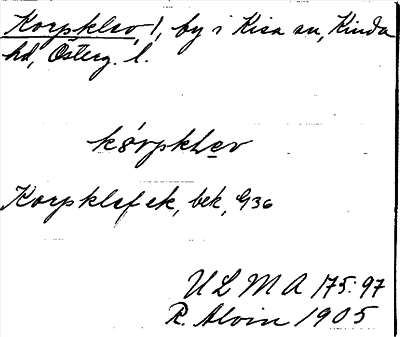 Korpklev, !, by i Kisa sn, Kinda
hd, Österg. l.
Korpklef ek, bek, 936
ULMA 175:97
R. Alvin 1905